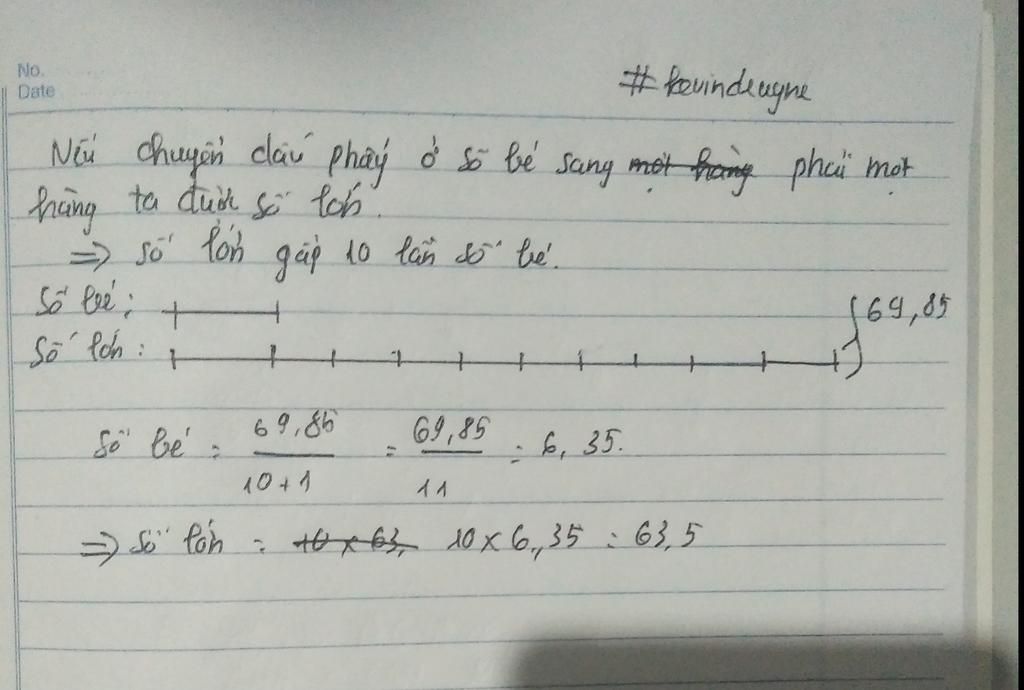 No.
Date
#kevindeugne
Nếu chuyển dấu phẩy ở số bé sang một hàng phải một
hàng ta được số lớn.
=> số lớn gấp 10 lần số bé.
Số bé:
69,85
Số lớn:
Số bé = 69,85 / 10+1 = 69,85 / 11 = 6,35.
=> Số lớn = 10 x 63, 10 x 6,35 = 63,5